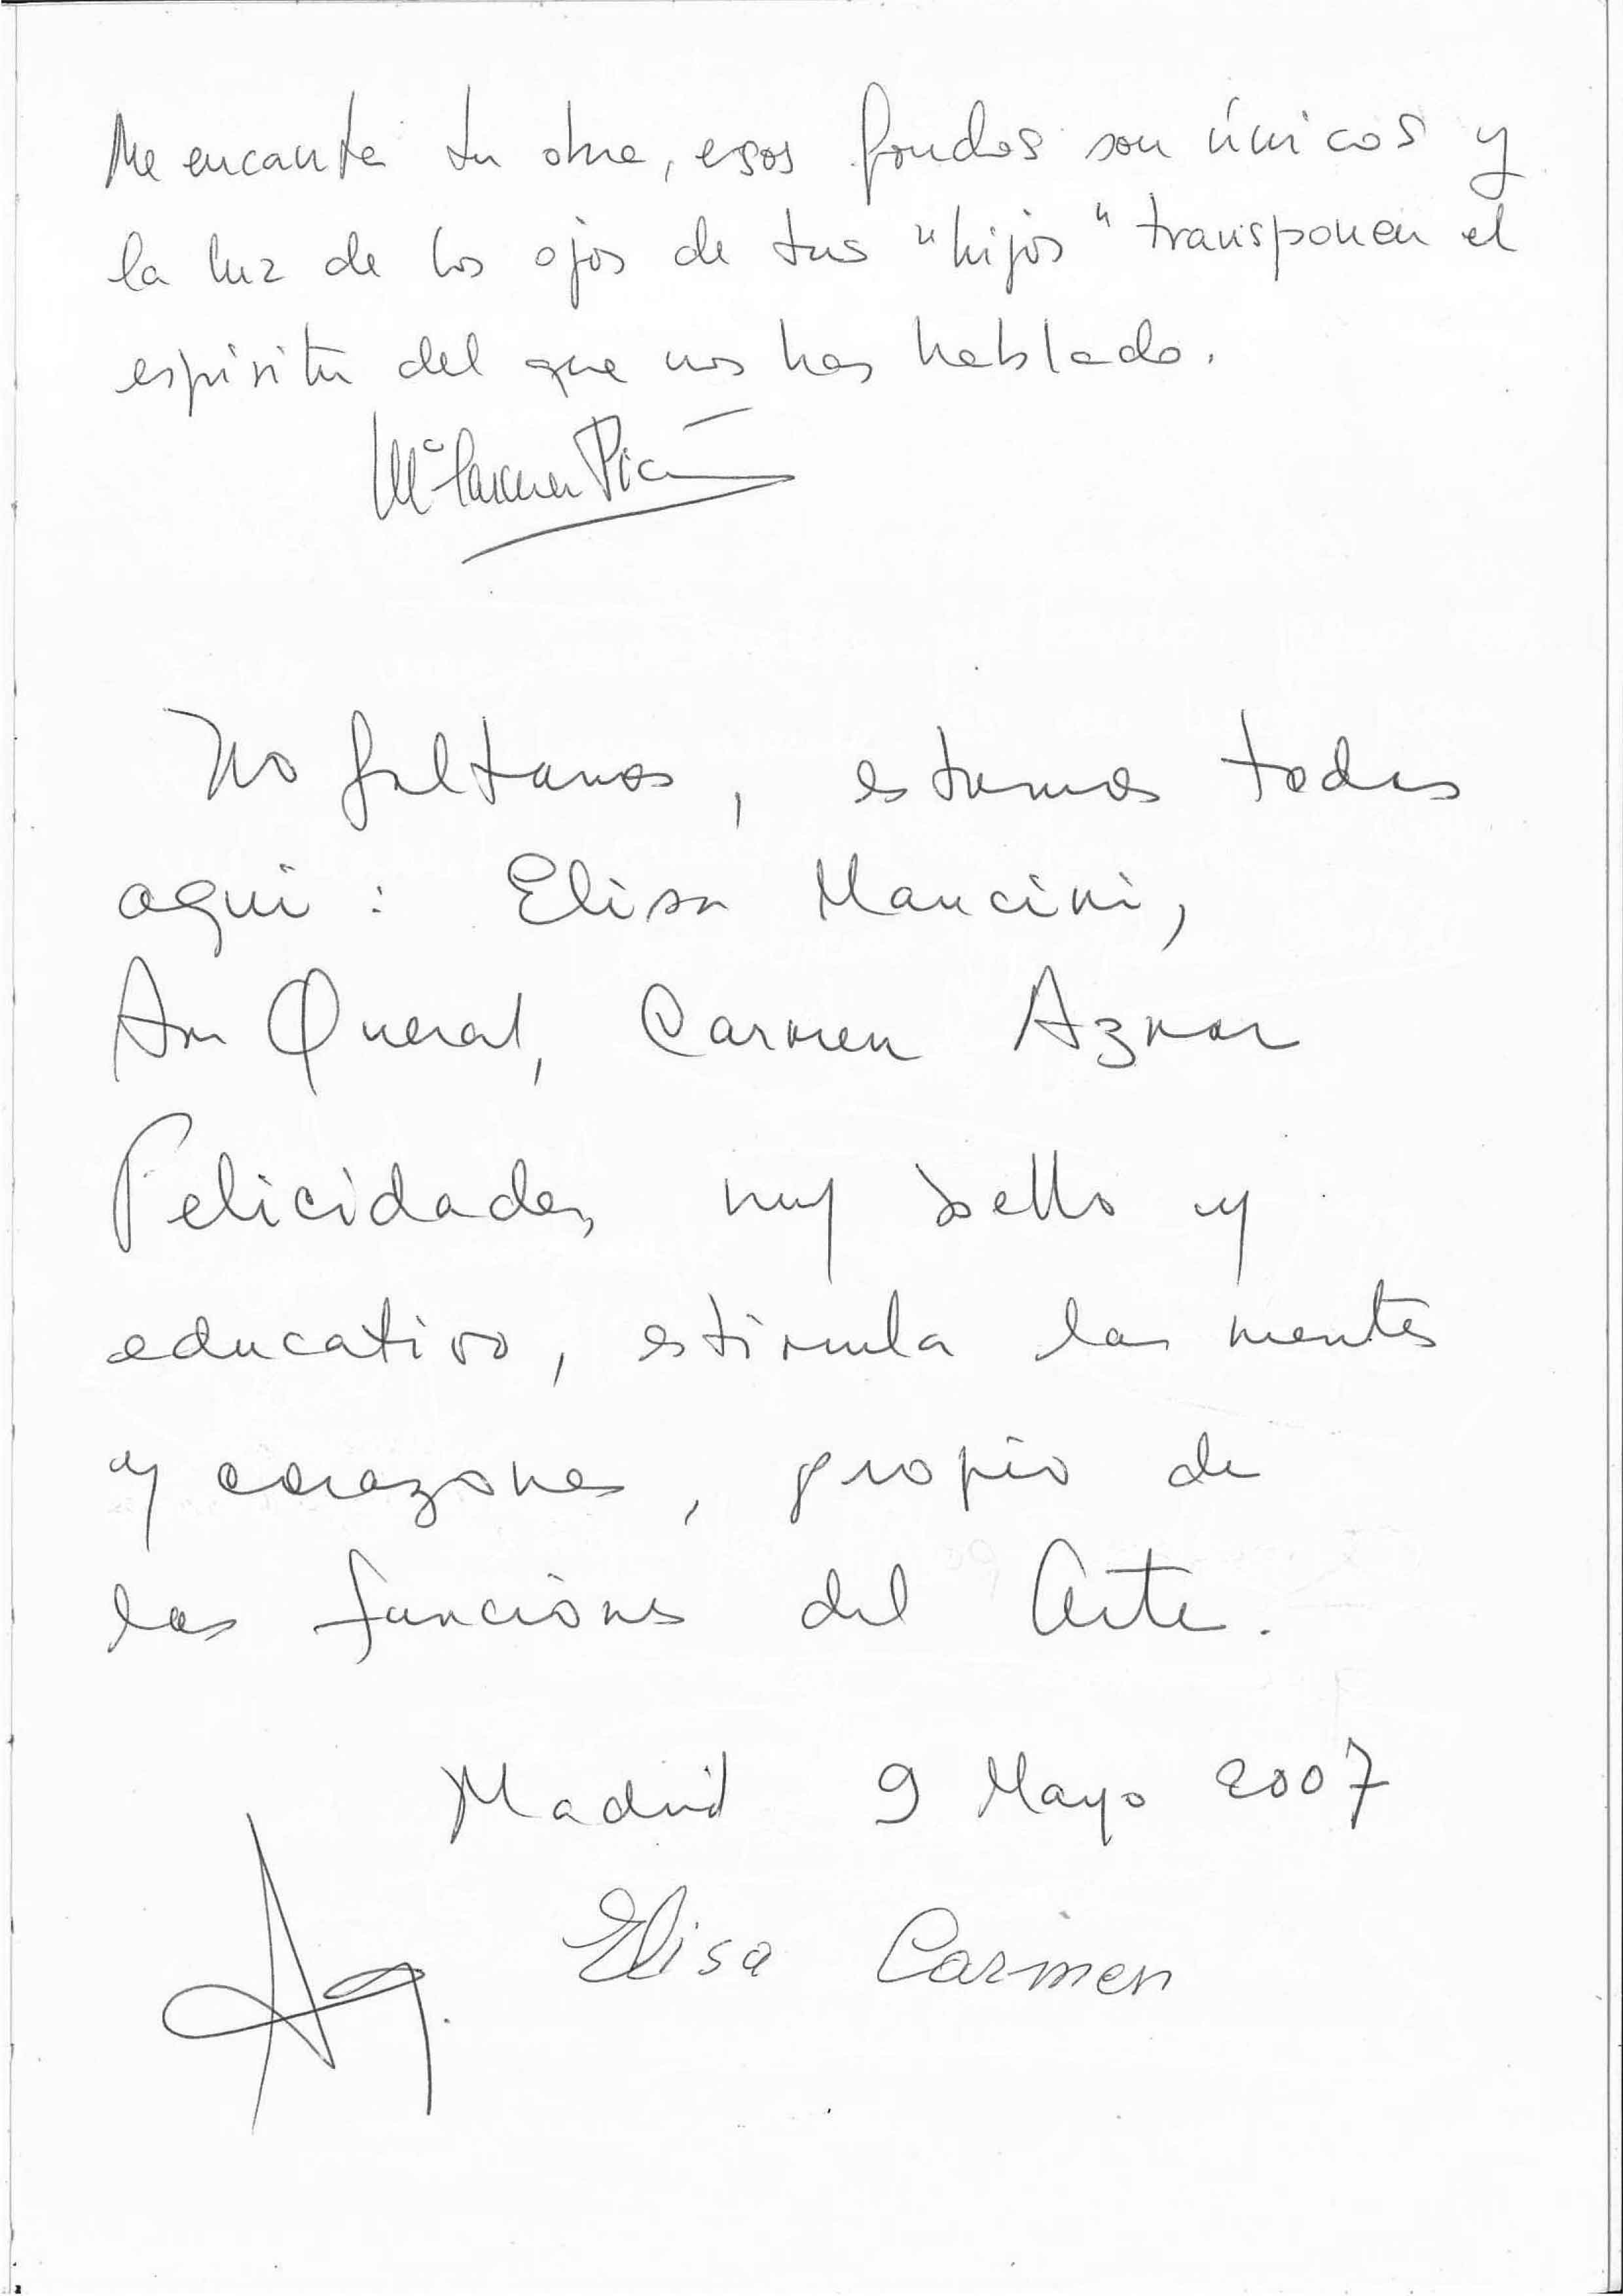 Me encanta tu obra, esos fondos son únicos y
la luz de los ojos de tus "hijos" transponen el
espiritu del que nos has hablado.
Mª Carmen
No faltamos, estamos todas
aqui : Elisa Mancini,
Ana Queral, Carmen Aznar
Felicidades, muy bello y
educativo, estimula las mentes
y corazones, propio de
las funciones del Arte.
Madrid 9 Mayo 2007
Elisa Carmen